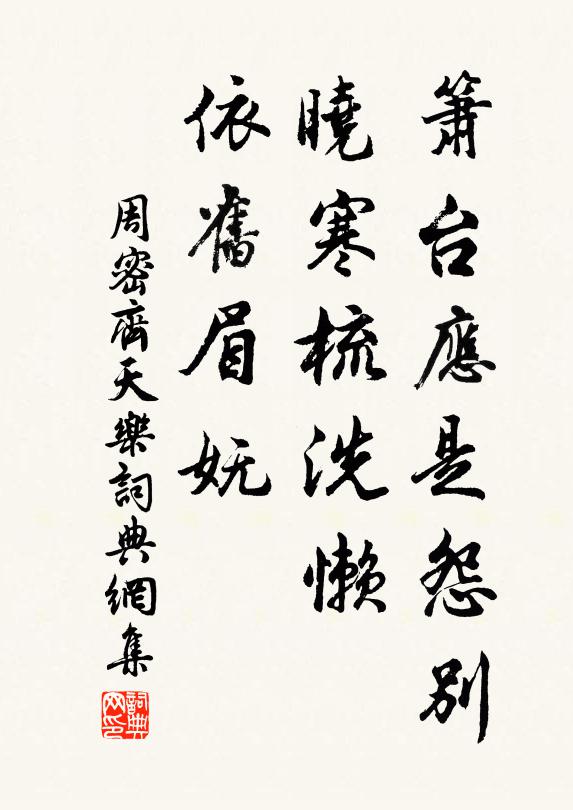 簫台應是怨別
曉寒梳洗懶
依舊眉嫵
周密齊天樂詞典網集
詞典网印